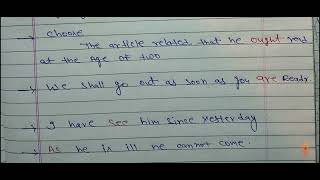 → choose
The article related that he ought read
at the age of two
→ We shall go out as soon as you are Readr.
→ I have see him since yesterday
→ As he is ill he cannot come.